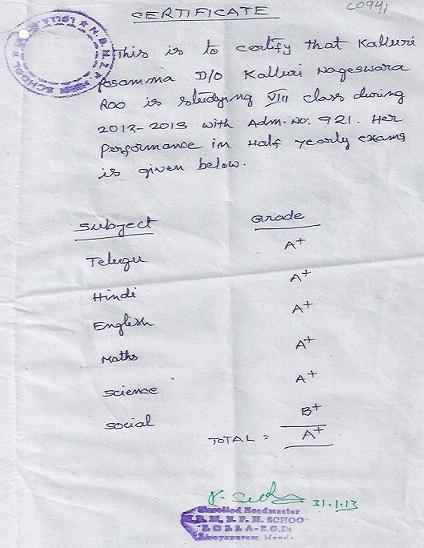 CERTIFICATE
C0941
This is to certify that Kalluri
Posamma D/O Kalluri Nageswara
Rao is studying VIII class during
2012-2013 with Adm. No: 921. Her
Performance in Half yearly exams
is given below.
Subject Grade
Telugu A+
Hindi A+
English A+
Maths A+
Science A+
Social B+
TOTAL = A+
31.1.13
Headmaster
SCHOO